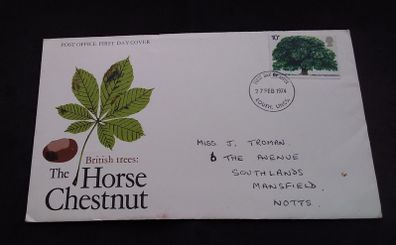 POST OFFICE FIRST DAY COVER
10p
FIRST DAY OF ISSUE
27 FEB 1974
LOUTH, LINCS.
British trees:
The Horse
Chestnut
MISS J. TROMAN.
6 THE AVENUE
SOUTHLANDS
MANSFIELD.
NOTTS.